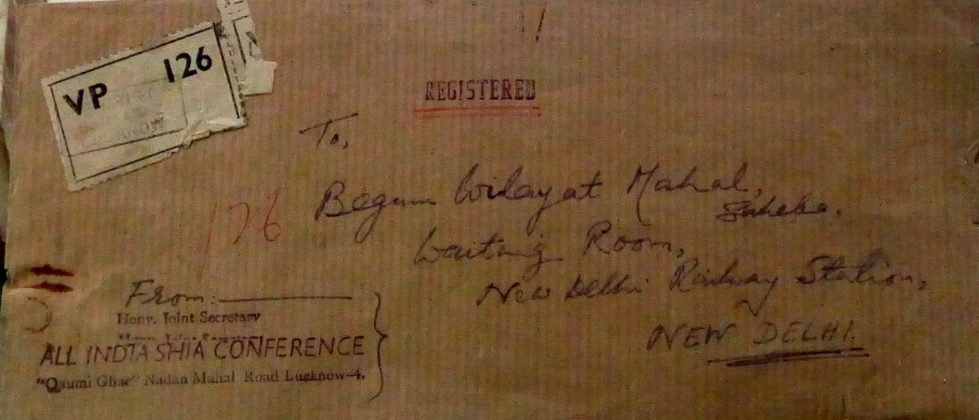 VP 126
REGISTERED
To,
Begum Wilayat Mahal,
Saheba.
Waiting Room,
New Delhi Railway Station,
NEW DELHI.
126
From:
Hony. Joint Secretary
ALL INDIA SHIA CONFERENCE
"Qaumi Ghar" Nadan Mahal Road Lucknow-4.